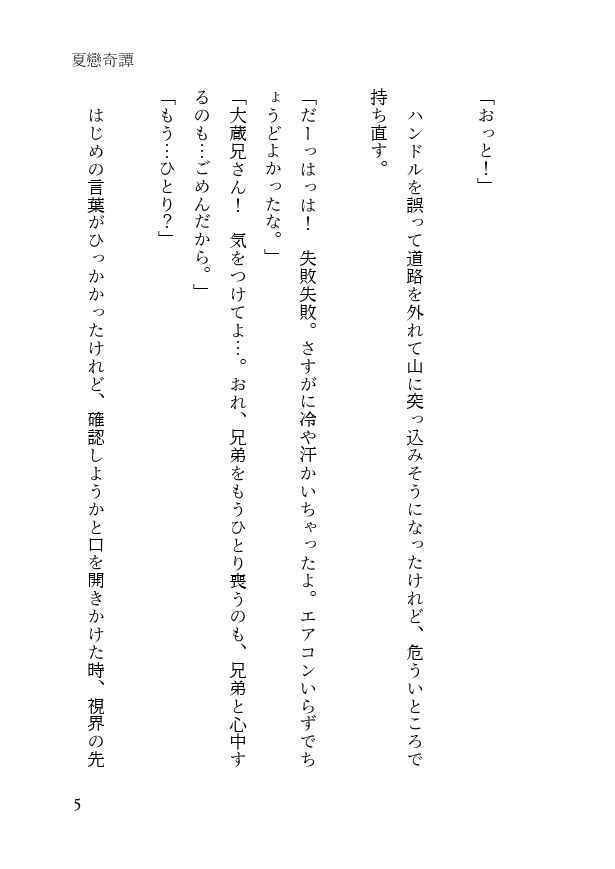 夏戀奇譚
「おっと！」
ハンドルを誤って道路を外れて山に突っ込みそうになったけれど、危ういところで
持ち直す。
「だーっはっは！　失敗失敗。さすがに冷や汗かいちゃったよ。エアコンいらずでち
ょうどよかったな。」
「大蔵兄さん！　気をつけてよ…。おれ、兄弟をもうひとり喪うのも、兄弟と心中す
るのも…ごめんだから。」
「もう…ひとり？」
はじめの言葉がひっかかったけれど、確認しようかと口を開きかけた時、視界の先
5